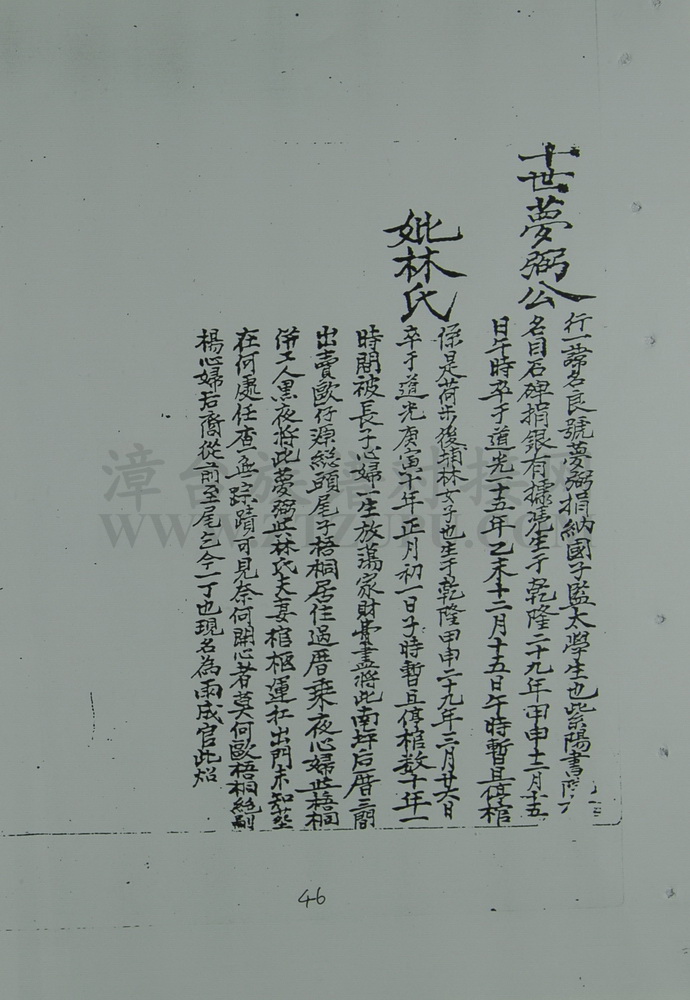 十世夢弼公
行一諱名良號夢弼捐納國子監太學生也此紫陽書院
名目石碑捐銀有據生于乾隆二十九年甲申十二月十五
日午時卒于道光十五年乙未十二月十五日午時暫且停棺
妣林氏
係是荷步後埔林女子也生于乾隆甲申二十九年三月廿六日
卒于道光庚寅十年正月初一日子時暫且停棺数十年一
時間被長子心婦一生放蕩家財費盡將此南坪后厝三間
出賣歐仔源総頭尾子梧桐居住過厝乘夜心婦與梧桐
併工人黑夜將此夢弼與林氏夫妻棺柩運扛出門未知塟
在何處任查無踪蹟可見奈何開心者莫何歐梧桐絶嗣
楊心婦后裔從前至尾乞今一丁也現名為雨成官此炤
46
漳台族譜對接網
www.ztzupu.com